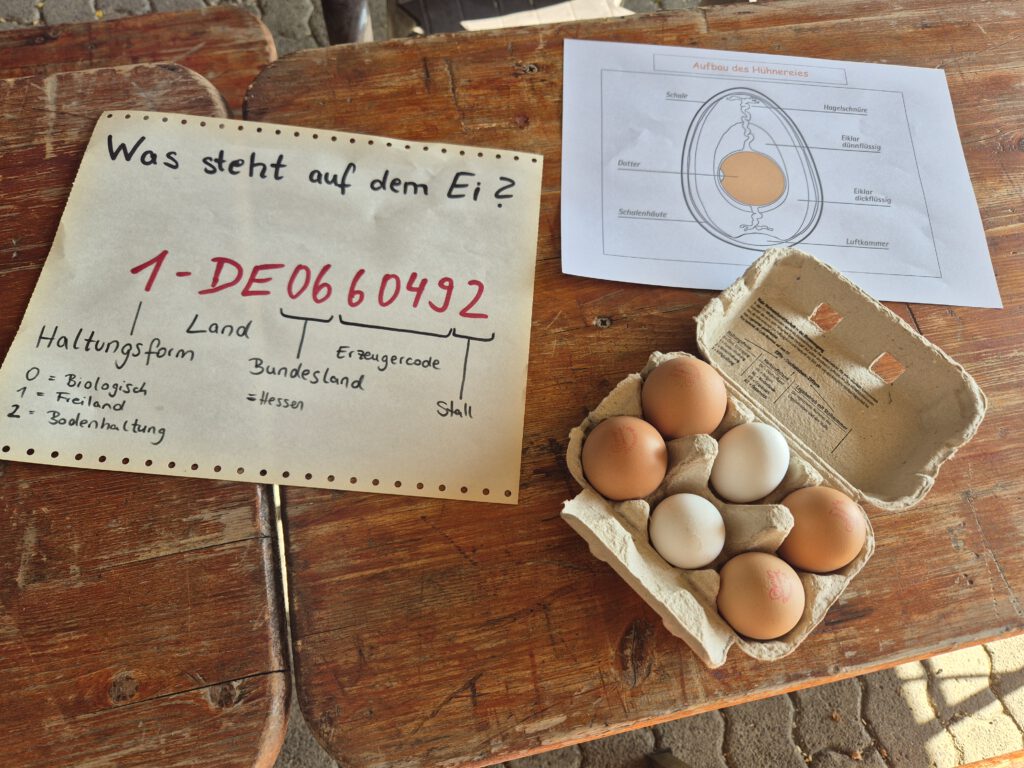 Was steht auf dem Ei?
1-DE0660492
Haltungsform
Land
Bundesland
=Hessen
Erzeugercode
Stall
0 = Biologisch
1 = Freiland
2 = Bodenhaltung
Aufbau des Hühnereies
Schale
Hagelschnüre
Eiklar
dünnflüssig
Dotter
Eiklar
dickflüssig
Schalenhäute
Luftkammer